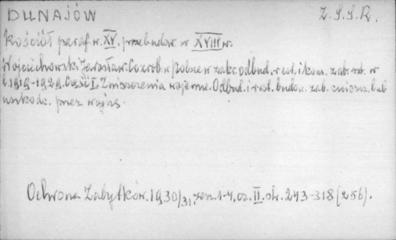 DUNAJÓW Z.S.S.R.
Kościół paraf. w. XV. przebudow. w XVIII w.
Wojciechowski Jarosław. Co zrob. w Polsce w zakr. odbud. rest. i kons. zab. arch. w
l. 1919-1929. Część I. Zniszczenia wojenne. Odbud. i rest. budow. zab. zniszcz. lub
uszkodz. przez wojnę.
Ochrona Zabytków. 1930/31, zesz. 1-4, cz. II. str. 243-318 (256).